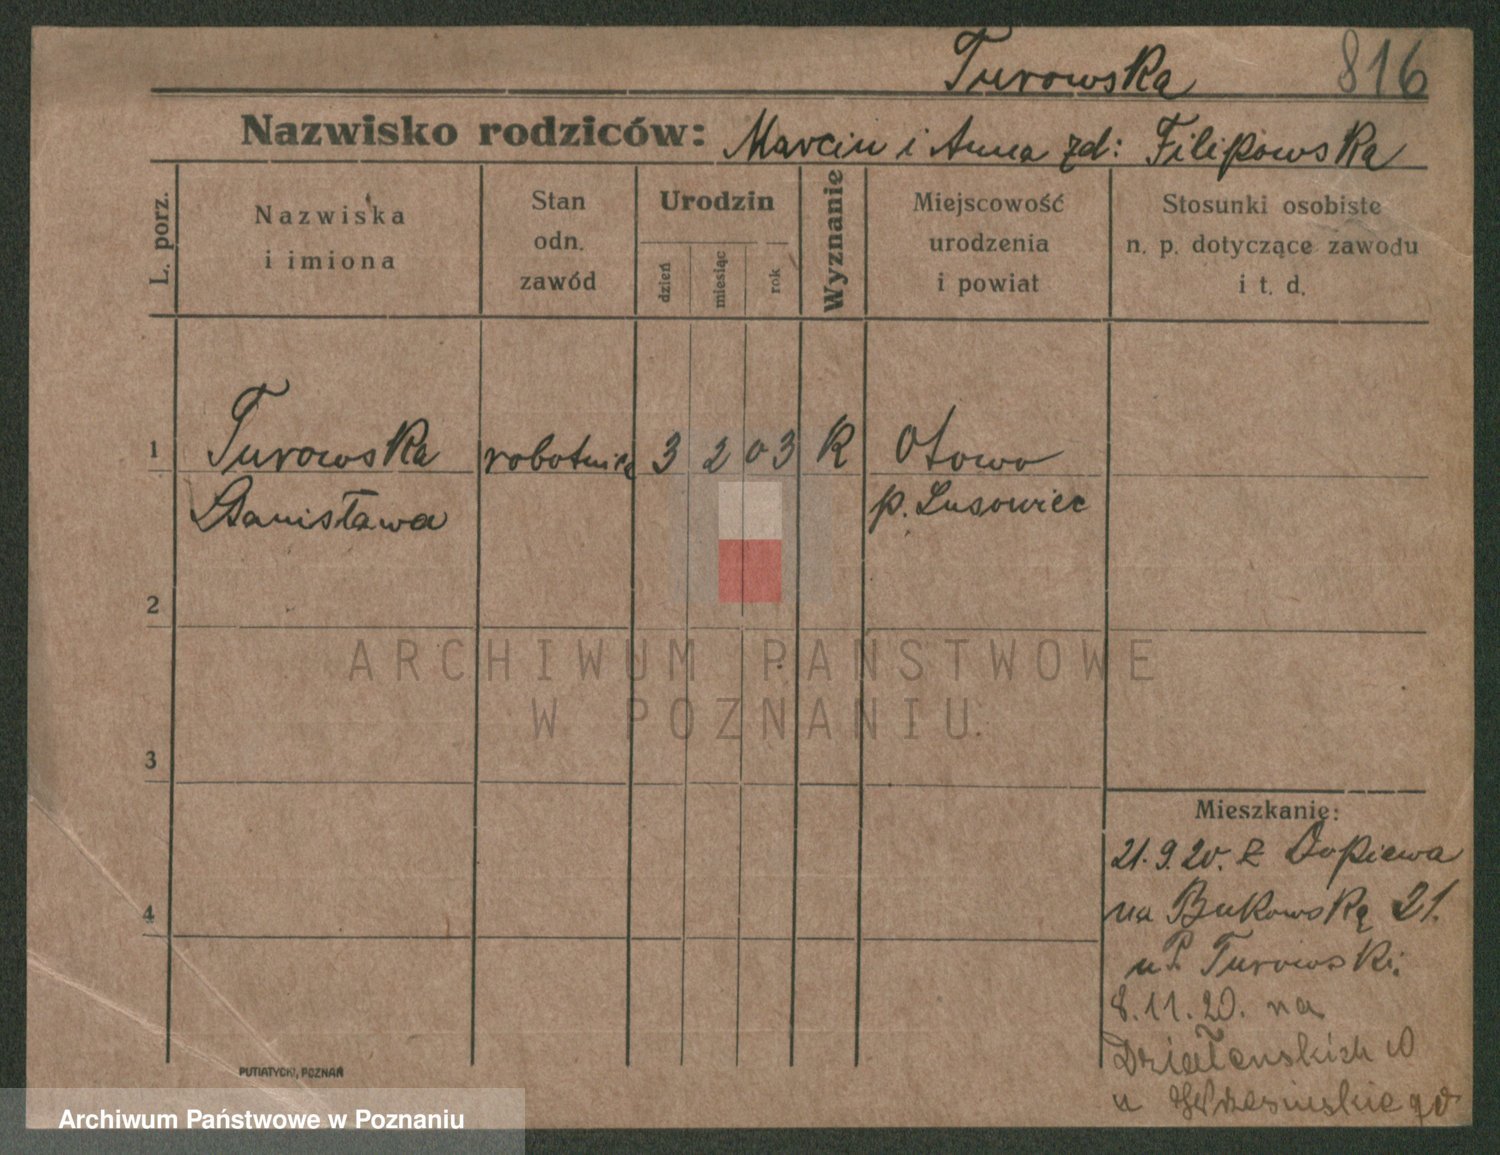 Turowska 816
Nazwisko rodziców: Marcin i Anna zd: Filipowska
L. porz.
Nazwiska
i imiona
Stan
odn.
zawód
Urodzin
dzień
miesiąc
rok
Wyznanie
Miejscowość
urodzenia
i powiat
Stosunki osobiste
n. p. dotyczące zawodu
i t. d.
1 Turowska robotnica 3 2 03 R Otowo
Stanisława p. Lusowiec
2
3
Mieszkanie:
21.9.20. z Dopiewa
4 na Bukowską 21.
u P. Turowski.
8.11.20. na
u
PUTIATYCKI, POZNAŃ
ARCHIWUM PAŃSTWOWE
W POZNANIU
Archiwum Państwowe w Poznaniu